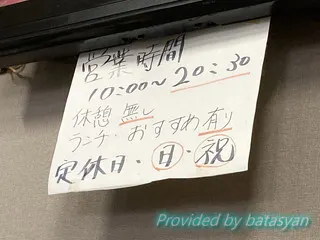 営業時間
10:00〜20:30
休憩 無し
ランチ・おすすめ有り
定休日・日・祝
Provided by batasyan